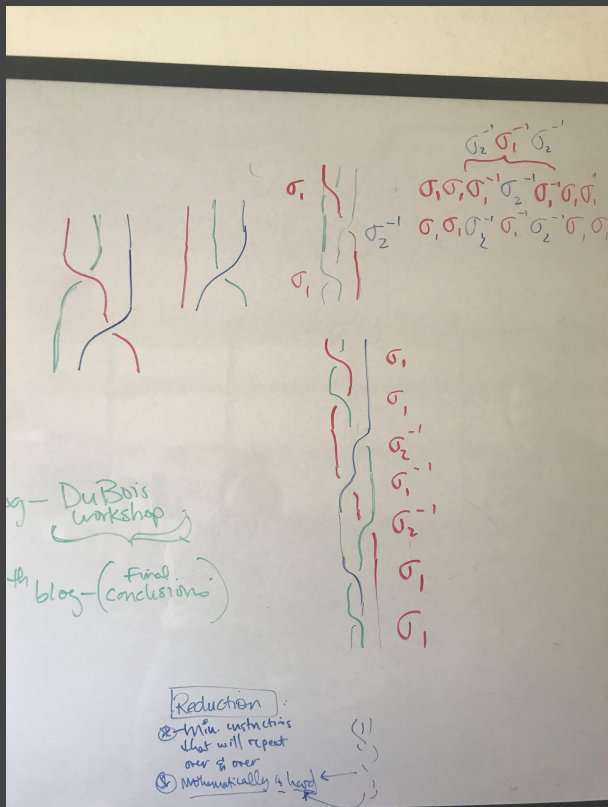 σ₂⁻¹ σ₁⁻¹ σ₂⁻¹
σ₁ σ₁ σ₁⁻¹ σ₂⁻¹ σ₁⁻¹ σ₁ σ₁
σ₁ σ₁ σ₂⁻¹ σ₁⁻¹ σ₂⁻¹ σ₁ σ
σ₁
σ₂⁻¹
σ₁
σ₁
σ₁
σ₂⁻¹
σ₁⁻¹
σ₂⁻¹
σ₁
σ₁
og - DuBois
workshop
th blog - (Final
conclusions)
Reduction :
① Min. instructions
that will repeat
over & over
① Mathematically is hard